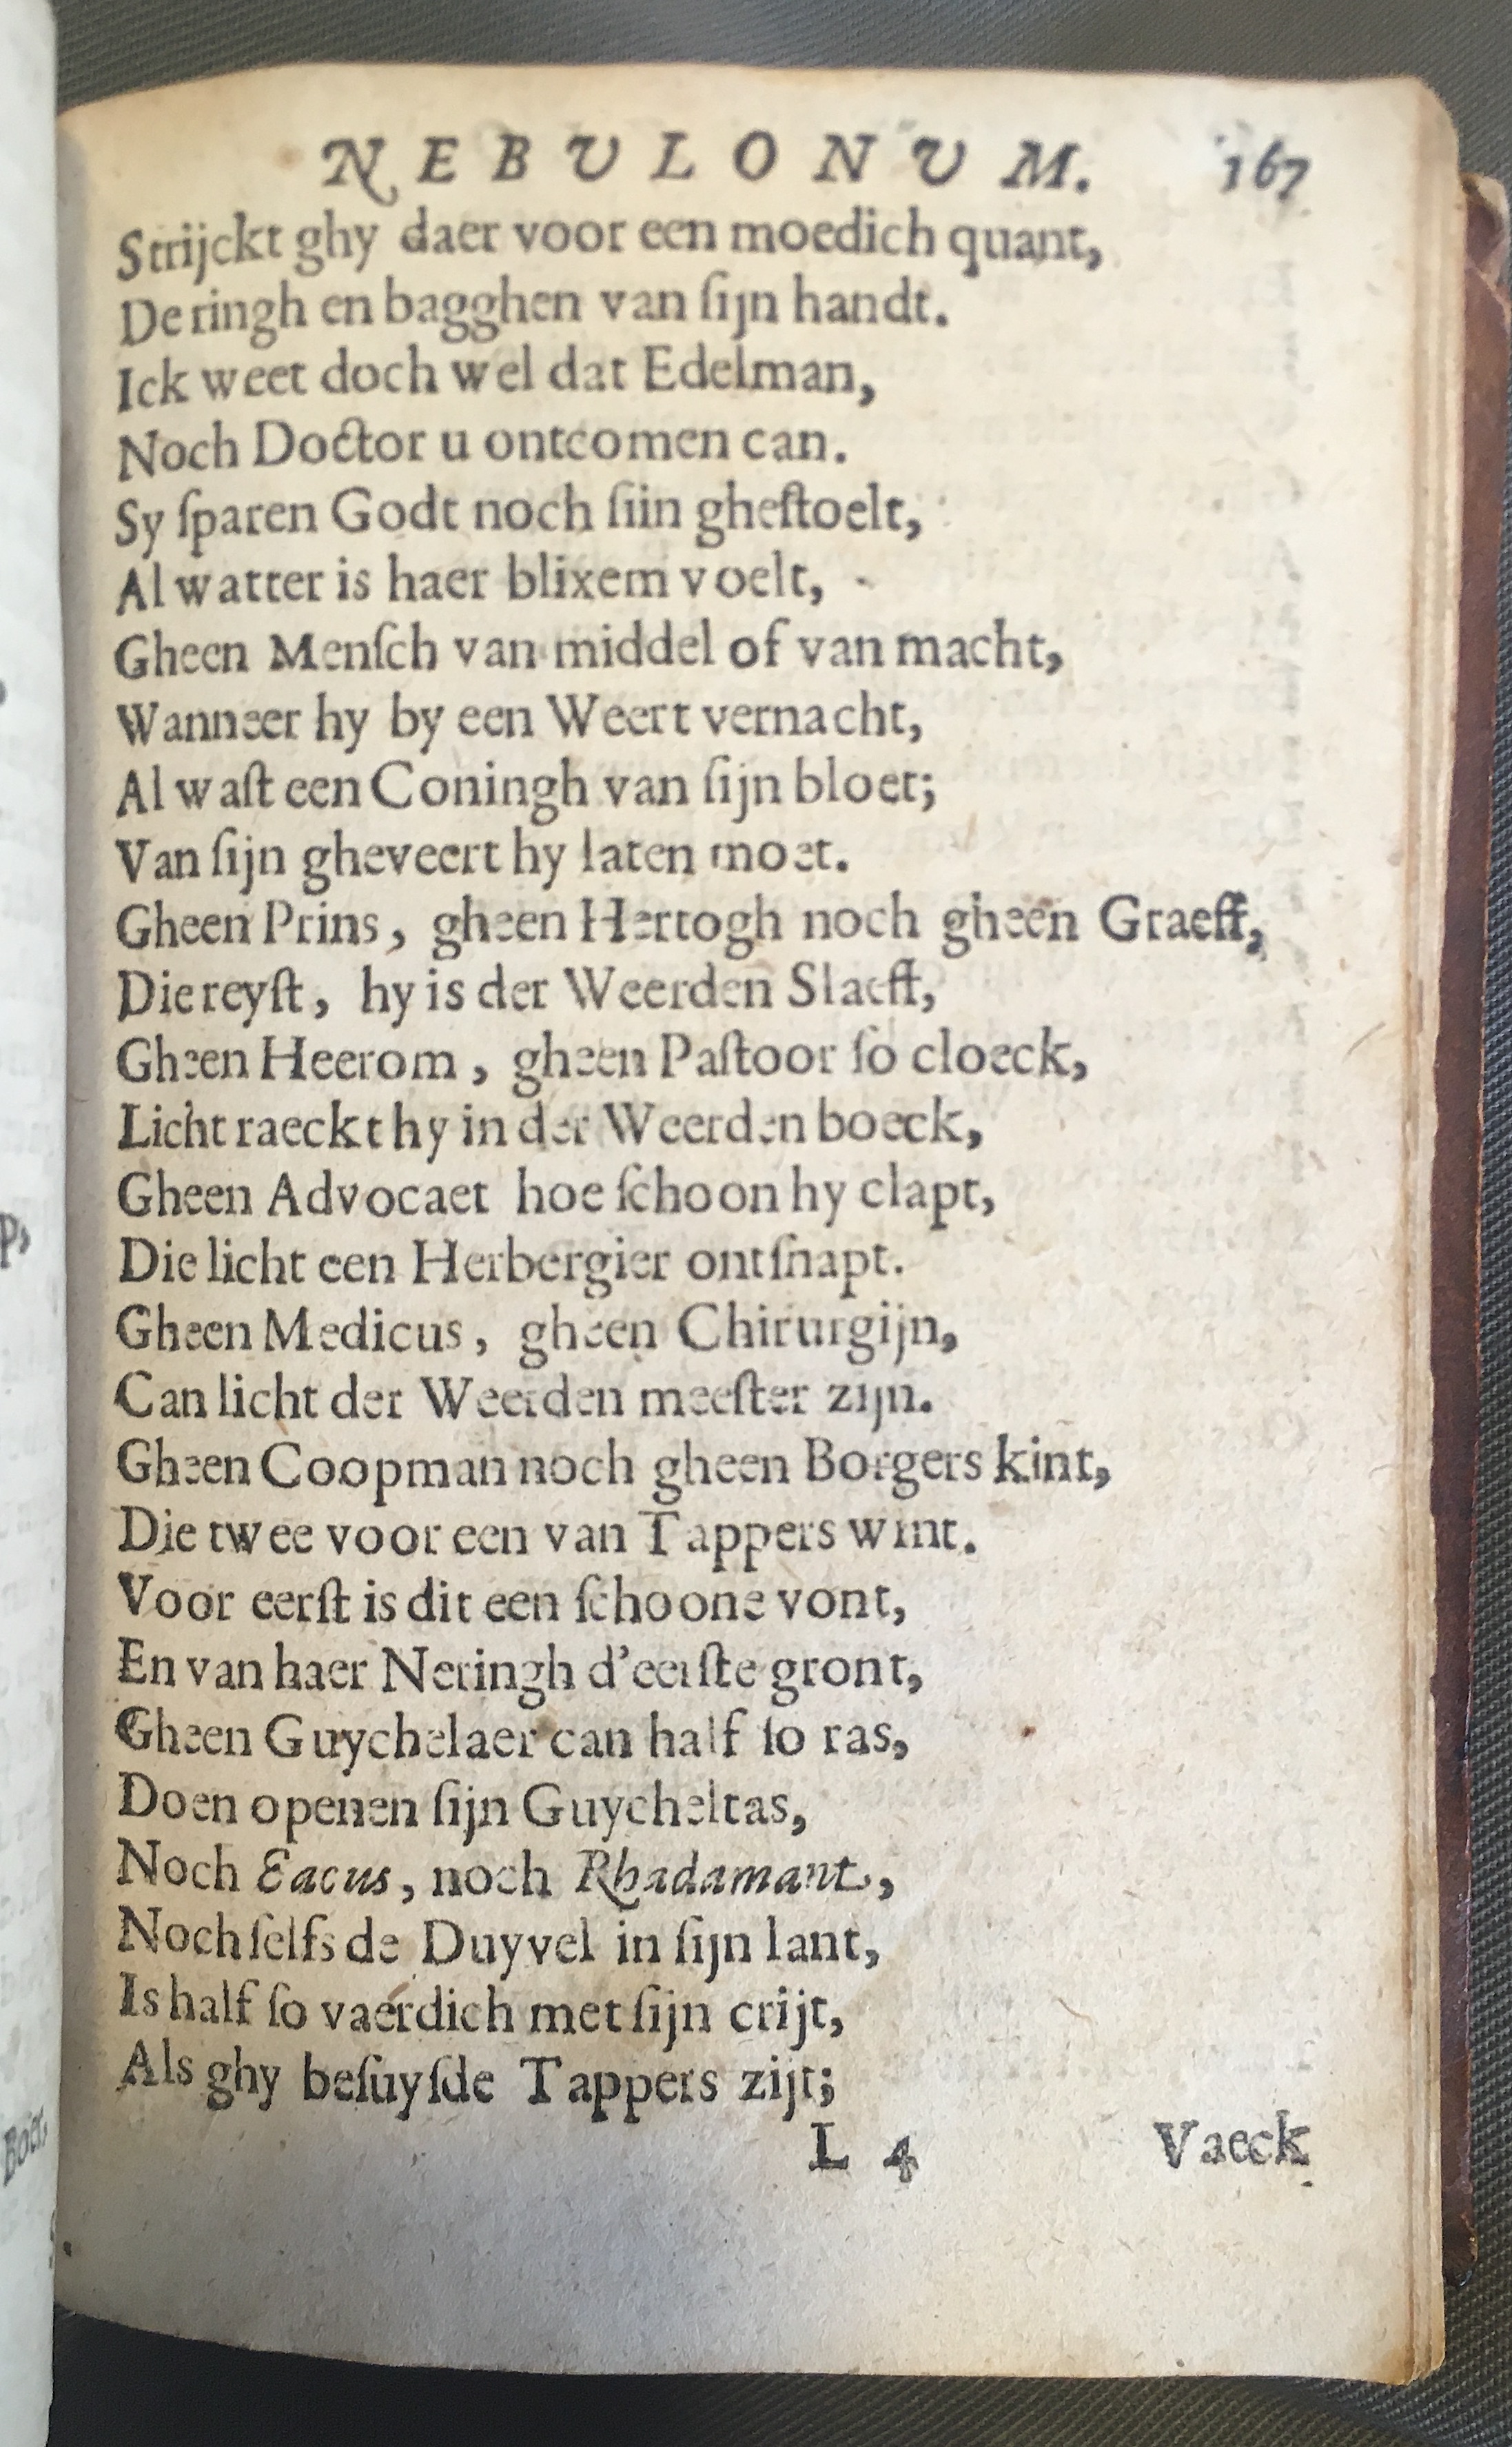 NEBULONUM. 167
Strijckt ghy daer voor een moedich quant,
De ringh en bagghen van ſijn handt.
Ick weet doch wel dat Edelman,
Noch Doctor u ontcomen can.
Sy ſparen Godt noch ſiin gheſtoelt,
Al watter is haer blixem voelt,
Gheen Menſch van middel of van macht,
Wanneer hy by een Weert vernacht,
Al waſt een Coningh van ſijn bloet;
Van ſijn gheveert hy laten moet.
Gheen Prins, gheen Hertogh noch gheen Graeff,
Die reyſt, hy is der Weerden Slaeff,
Gheen Heerom, gheen Paſtoor ſo cloeck,
Licht raeckt hy in der Weerden boeck,
Gheen Advocaet hoe ſchoon hy clapt,
Die licht een Herbergier ontſnapt.
Gheen Medicus, gheen Chirurgijn,
Can licht der Weerden meeſter zijn.
Gheen Coopman noch gheen Borgers kint,
Die twee voor een van Tappers wint.
Voor eerſt is dit een ſchoone vont,
En van haer Neringh d'eerſte gront,
Gheen Guychelaer can half ſo ras,
Doen openen ſijn Guycheltas,
Noch Eacus, noch Rhadamant,
Noch ſelfs de Duyvel in ſijn lant,
Is half ſo vaerdich met ſijn crijt,
Als ghy beſuyſde Tappers zijt;
L 4 Vaeck
p,
Boer,